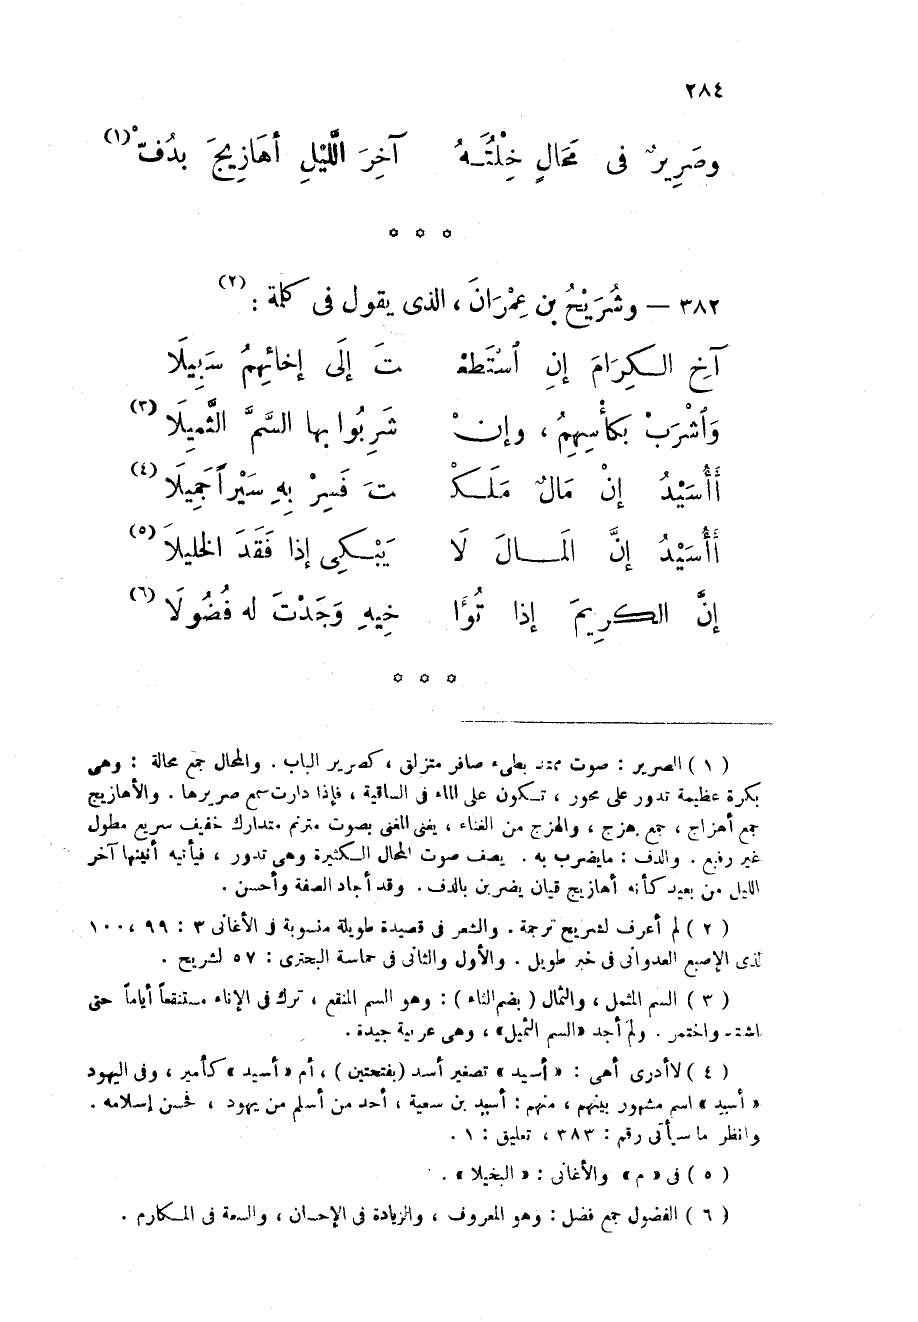 ٢٨٤
وصَرِيرٌ فى مَحَالٍ خِلْتُـهُ آخِرَ اللَّيْلِ أهَازِيجَ بدُفّْ(١)
* * *
٣٨٢ — وشُرَيْحُ بن عِمْرَانَ ، الذى يقول فى كلمة : (٢)
آخِ الـكِرَامَ إنِ ٱسْتَطعْـتَ إلَى إخائِهِمُ سَبِيلَا
وَٱشْرَبْ بكأْسِهِمُ ، وإنـْ شَرِبُوا بها السَّمَّ الثَّمِيلَا (٣)
أَأُسَيْدُ إنْ مَالٌ مَلَـكْـتَ فَسِرْ بِهِ سَيْراً جَمِيلَا (٤)
أَأُسَيْدُ إنَّ المَـالَ لَا يَبْـكِى إذا فَقَدَ الخليلاَ (٥)
إنَّ الكرِيمَ إذا تُؤَاخِيهِ وَجَدْتَ له فُضُولَا (٦)
* * *
( ١ ) الصرير : صوت ممتد بطىء صافر متزلق ، كصرير الباب . والمحال جمع محالة : وهى
بكرة عظيمة تدور على محور ، تـكون على الماء فى الساقية ، فإذا دارت سمع صريرها . والأهازيج
جمع أهزاج ، جمع هزج ، والهزج من الغناء ، يغنى المغنى بصوت مترنم متدارك خفيف سريع مطول
غير رفيع . والدف : مايضرب به . يصف صوت المحال الـكثيرة وهى تدور ، فيأتيه أنينها آخر
الليل من بعيد كأنه أهازيج قيان يضربن بالدف . وقد أجاد الصفة وأحسن .
( ٢ ) لم أعرف لشريح ترجمة . والشعر فى قصيدة طويلة منسوبة فى الأغانى ٣ : ٩٩ ، ١٠٠
لذى الإصبع العدوانى فى خبر طويل . والأول والثانى فى حماسة البحترى : ٥٧ لشريح .
( ٣ ) السم المثمل ، والثمال ( بضم الثاء ) : وهو السم المنقع ، ترك فى الإناء مستنقعاً أياماً حتى
اشتد واختمر . ولم أجد «السم الثميل» ، وهى عربية جيدة .
( ٤ ) لاأدرى أهى : « أسيد » تصغير أسد (بفتحتين ) ، أم « أسيد » كأمير ، وفى اليهود
« أسيد » اسم مشهور بينهم ، منهم : أسيد بن سعية ، أحد من أسلم من يهود ، فحسن إسلامه .
وانظر ما سيأتى رقم : ٣٨٣ ، تعليق : ١ .
( ٥ ) فى « م » والأغانى : « البخيلا » .
( ٦ ) الفضول جمع فضل : وهو المعروف ، والزيادة فى الإحسان ، والسعة فى المـكارم .